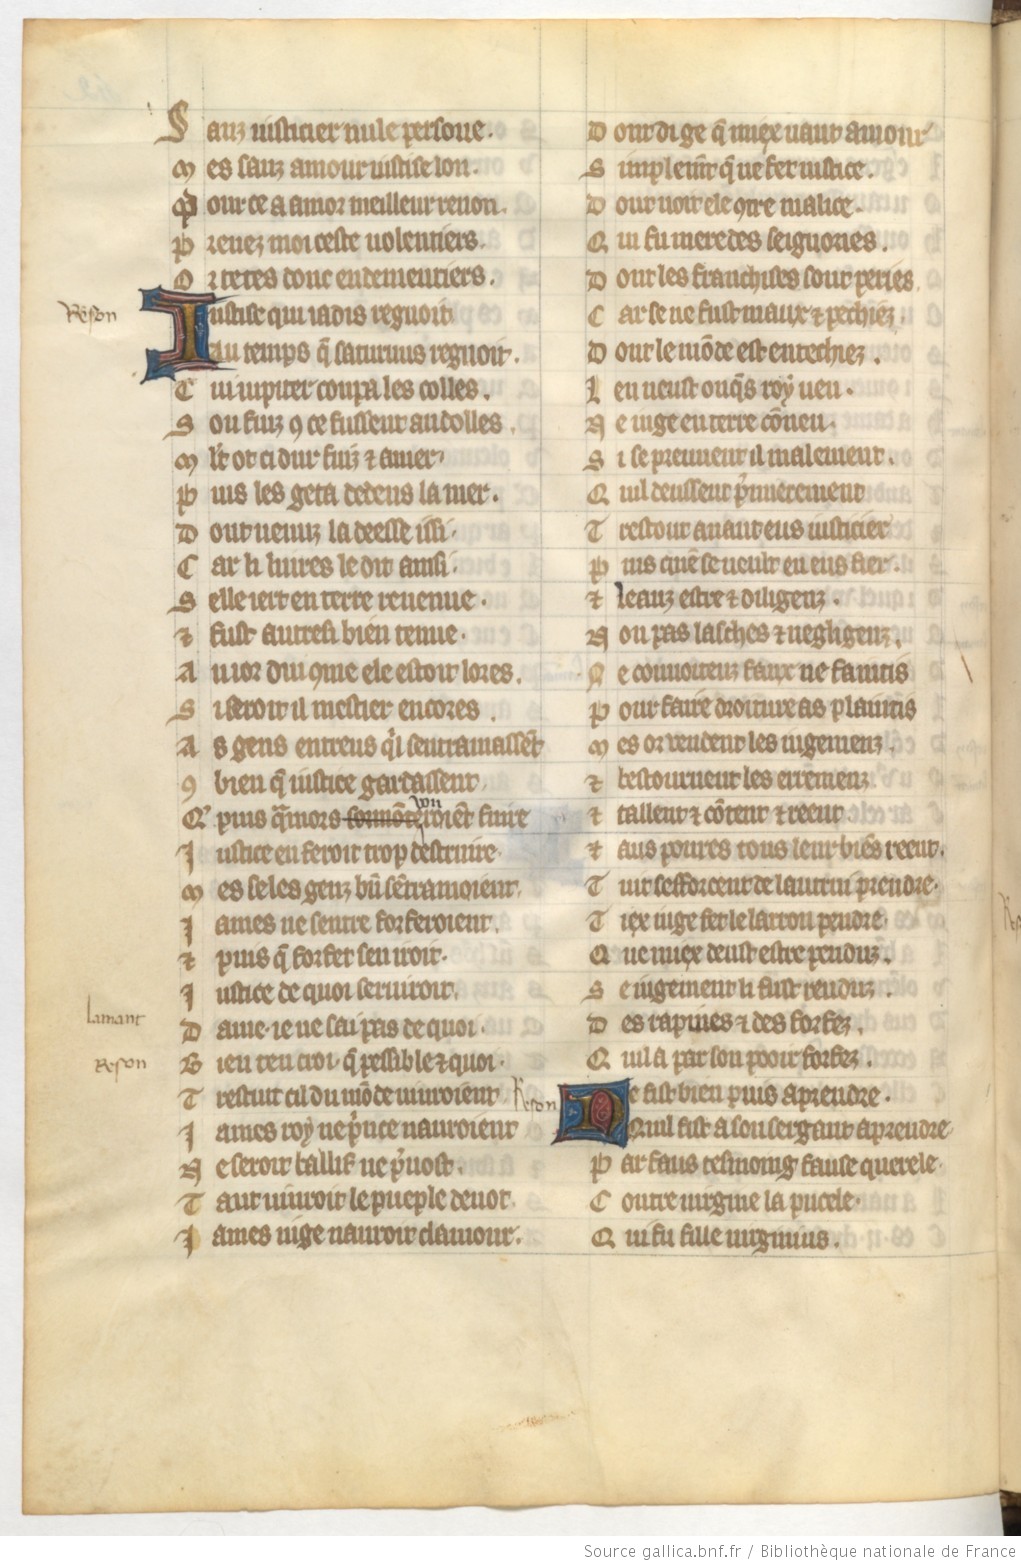 Sanz iusticier nule persone.
Mes sanz amour iustise lon.
Pour ce a amor meilleur renon.
Prenez moi ceste uolentiers.
Or tetes donc endementiers.
Reson
Iustise qui iadis regnoit
Au temps q̃ saturnus regnoit.
Cui iupiter coupa les colles.
Son fuiz 9 ce fussent andolles.
Ml't ot ci dur fuiz ⁊ amer
Puis les geta dedens la mer.
Dont uenuz la deesse issi.
Car li liures le dit ainsi.
Selle iert en terre reuenue.
⁊ fust autresi bien tenue.
Au ior dui 9me ele estoit lores.
Si seroit il mestier encores.
As gens entreus q'l sentramassẽt
9bien q̃ iustice gardassent
Q' puis q̃mors uoiẽt fuire
Justice en feroit trop destruire
Mes se les genz bñ sẽtramoient
Iames ne sentre forferoient.
⁊ puis q̃ forfet sen iroit.
Justice de quoi seruiroit.
lamant
Dame ie ne sai pas de quoi.
Reson
Bien ten croi q̃ pesible ⁊ quoi.
Trestuit cil du mõde uiuroient
Iames roy ne p'nce nauroient
Ne seroit baillif ne p'uost.
Tant uiuroit le pueple deuot.
Iames iuge nauroit clamour.
Dont di ge q̃ miex uaut amour
Simplem̃t q̃ ne fet iustice.
Dour uoir ele 9tre malice.
Qui fu mere des seignories.
Dont les franchises sont peries
Car se ne fust maux ⁊ pechiez.
Dont le mõde est entechiez.
Len neust onq̃s roy ueu.
Ne iuge en terre cõneu.
Si se preuuent il malement.
Quil deussent p'mierement
Trestout auant eus iusticier
Puis quẽ se ueult en eus fier.
⁊ leauz estre ⁊ diligenz.
Non pas lasches ⁊ negligenz.
Ne conuoiteuz faux ne faintis
Pour faire droiture as plaintis
Mes or uendent les iugemenz.
⁊ bestournent les erremenz
⁊ taillent ⁊ cõtent ⁊ reent.
⁊ aus poures tous leur biẽs reent.
Tuit sefforcent de lautrui prendre.
Tiex iuge fet le larron pendre
Que miex deust estre penduz.
Se iugement li fust renduz.
Des rapines ⁊ des forfez.
Quil a par son pooir forfez.
Reson
Ne fist bien puis a prendre.
Quil fist a son sergant aprendre
Par faus tesmoing fause querele.
Contre uirgine la pucele.
Qui fu fille uirginius.
Source gallica.bnf.fr / Bibliothèque nationale de France